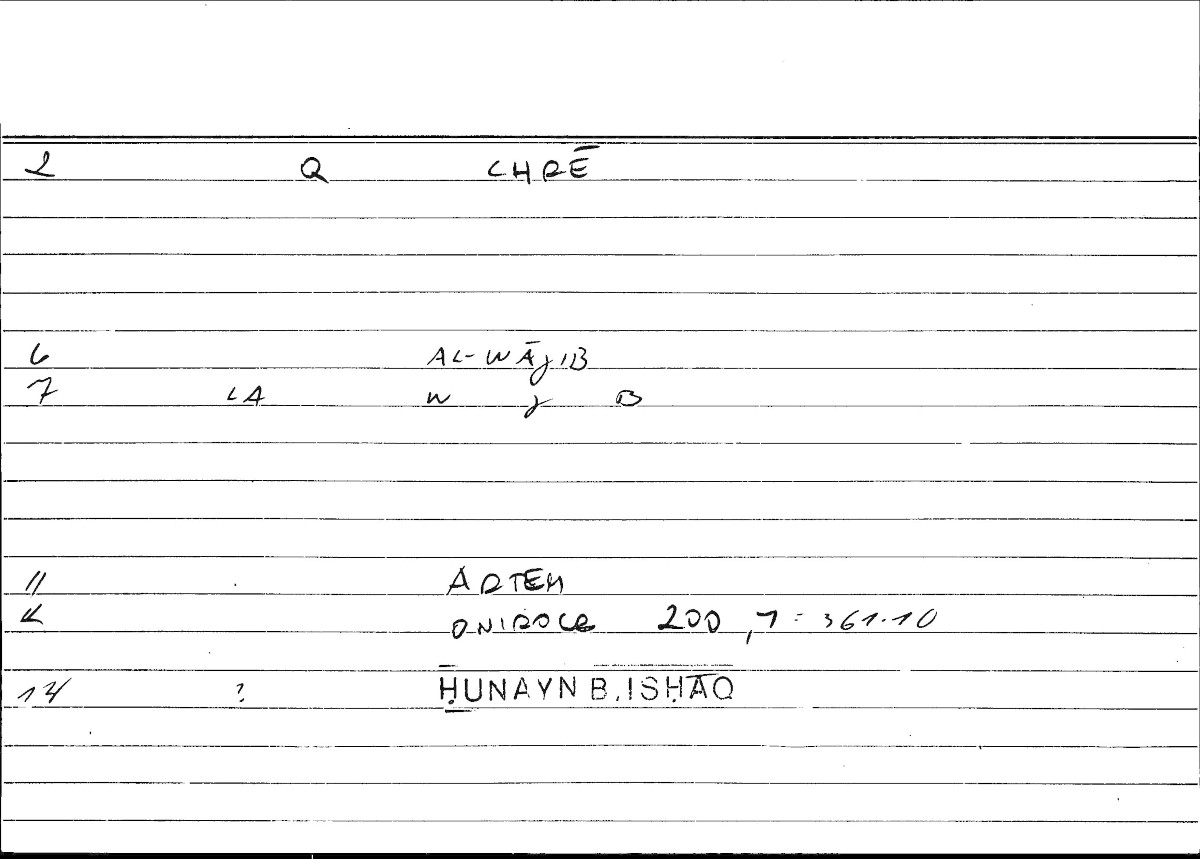 2 Q CHRĒ
6 AL-WĀJIB
7 LA W J B
11 ARTEM
ONIROCR 200,7 = 361.10
14 ? ḤUNAYN B. ISḤĀQ